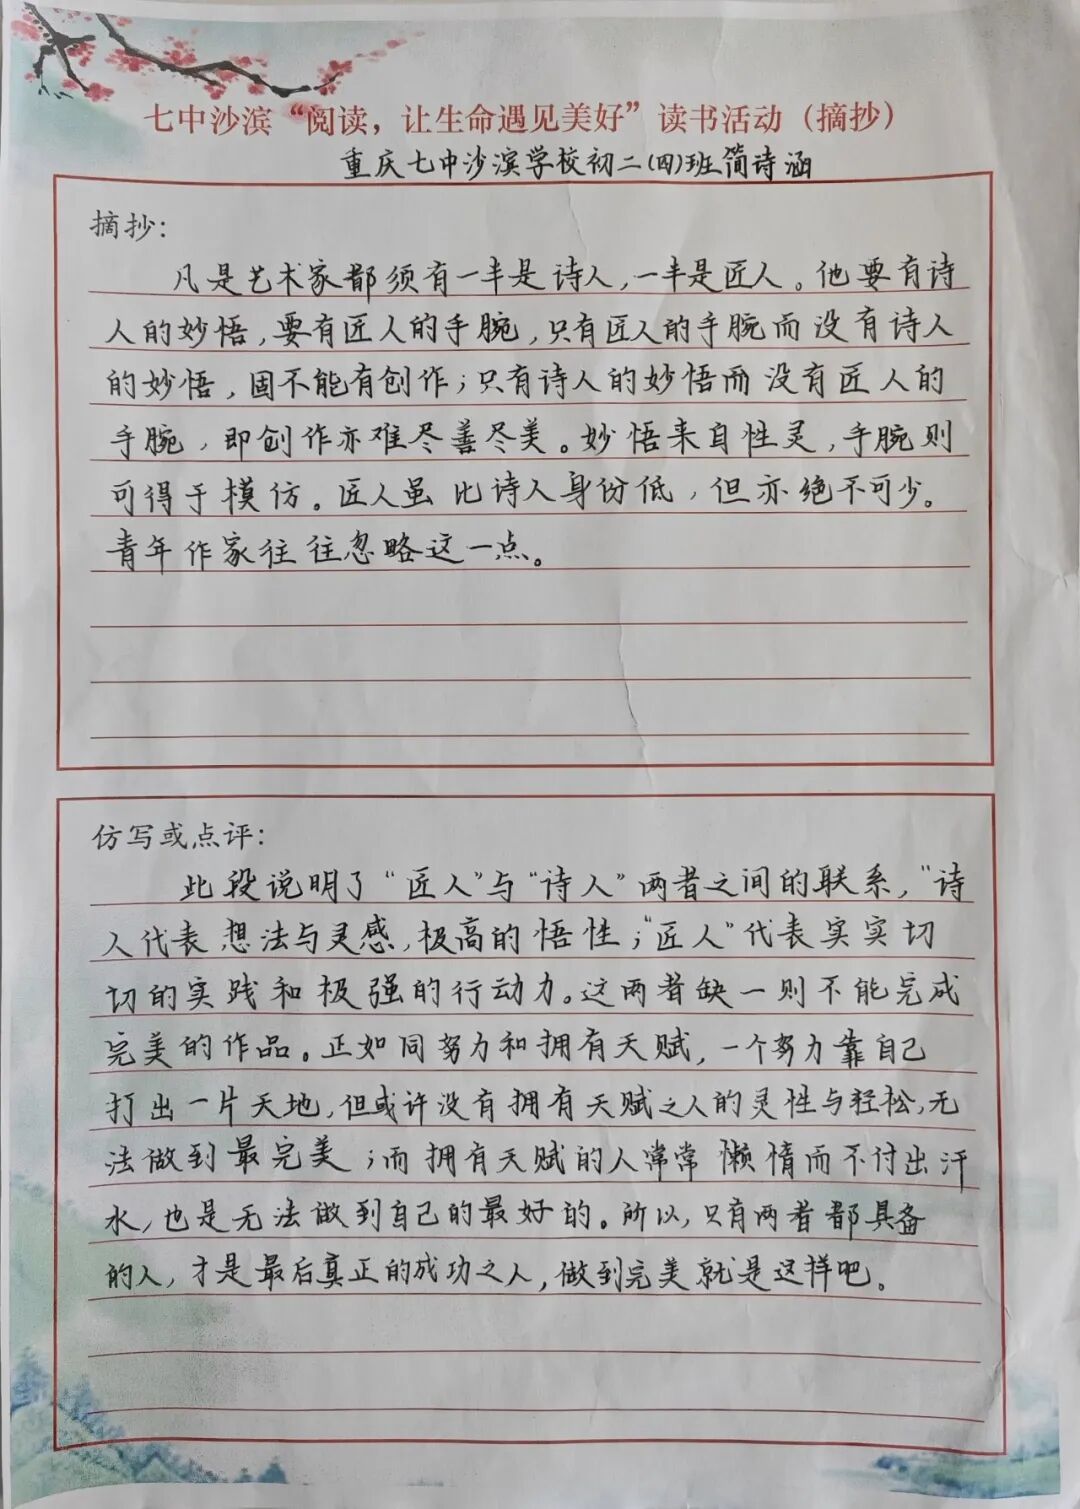 七中沙滨“阅读，让生命遇见美好”读书活动（摘抄）
重庆七中沙滨学校初二(四)班简诗涵
摘抄：
凡是艺术家都须有一半是诗人，一半是匠人。他要有诗
人的妙悟，要有匠人的手腕，只有匠人的手腕而没有诗人
的妙悟，固不能有创作；只有诗人的妙悟而没有匠人的
手腕，即创作亦难尽善尽美。妙悟来自性灵，手腕则
可得于模仿。匠人虽比诗人身份低，但亦绝不可少。
青年作家往往忽略这一点。
仿写或点评：
此段说明了“匠人”与“诗人”两者之间的联系，“诗
人代表想法与灵感，极高的悟性；“匠人”代表实实切
切的实践和极强的行动力。这两者缺一则不能完成
完美的作品。正如同努力和拥有天赋，一个努力靠自己
打出一片天地，但或许没有拥有天赋之人的灵性与轻松，无
法做到最完美；而拥有天赋的人常常懒惰而不付出汗
水，也是无法做到自己的最好的。所以，只有两者都具备
的人，才是最后真正的成功之人，做到完美就是这样吧。